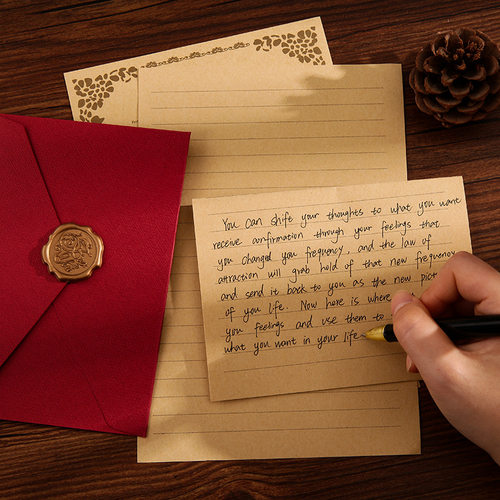 You can shift your thoughts to what you want
receive confirmation through your feelings that
you changed you frequency, and the law of
attraction will grab hold of that new frequency
and send it back to you as the new
of you life. Now here is where
you feelings and use them to
what you want in your life